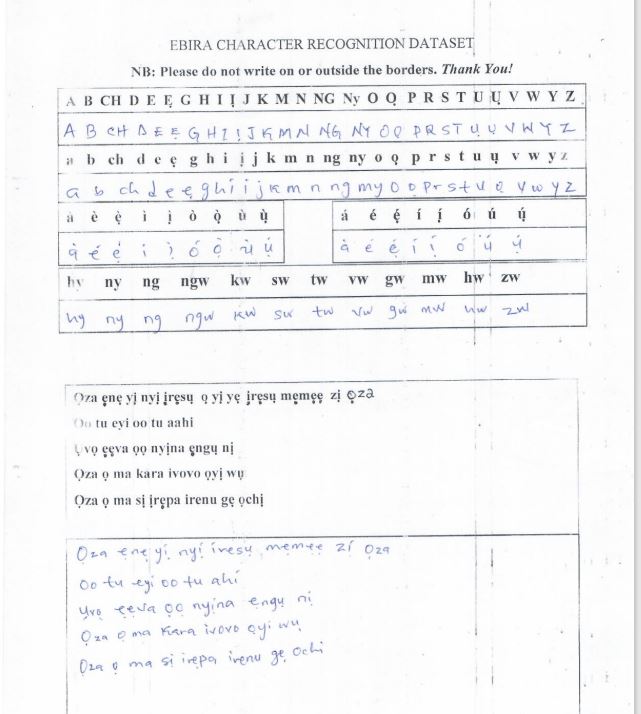 EBIRA CHARACTER RECOGNITION DATASET
NB: Please do not write on or outside the borders. Thank You!
A B CH D E Ẹ G H I Ị J K M N NG Ny O Ọ P R S T U Ụ V W Y Z
A B CH D E Ẹ G H I Ị J K M N NG NY O Ọ P R S T U Ụ V W Y Z
a b ch d e ẹ g h i ị j k m n ng ny o ọ p r s t u ụ v w y z
a b ch d e ẹ g h i i j k m n ng my o o p r s t u ụ v w y z
à è ẹ̀ ì ị̀ ò ọ̀ ù ụ̀ á é ẹ́ í ị́ ó ú ụ́
à é ẹ́ i ị̀ ó ọ̀ ù ụ́ à é ẹ́ í ị́ ó ú ụ́
hy ny ng ngw kw sw tw vw gw mw hw zw
hy ny ng ngw kw sw tw vw gw mw hw zw
Ọza ẹnẹ yị nyị ịrẹsụ ọ yị yẹ ịrẹsụ mẹmẹẹ zị ọza
Oo tu eyi oo tu aahi
Ụvọ ẹẹva ọọ nyịna ẹngụ nị
Ọza ọ ma kara ivovo ọyị wụ
Ọza ọ ma sị ịrẹpa irenu gẹ ọchị
Ọza ẹnẹ yị nyị ịresụ mẹmẹẹ zí Ọza
Oo tu eyi oo tu ahí
Ụvọ ẹẹva ọọ nyịna ẹngụ nị
Ọza ọ ma kara ivovo ọyi wụ
Ọza ọ ma sị irẹpa irẹnu gẹ ochi